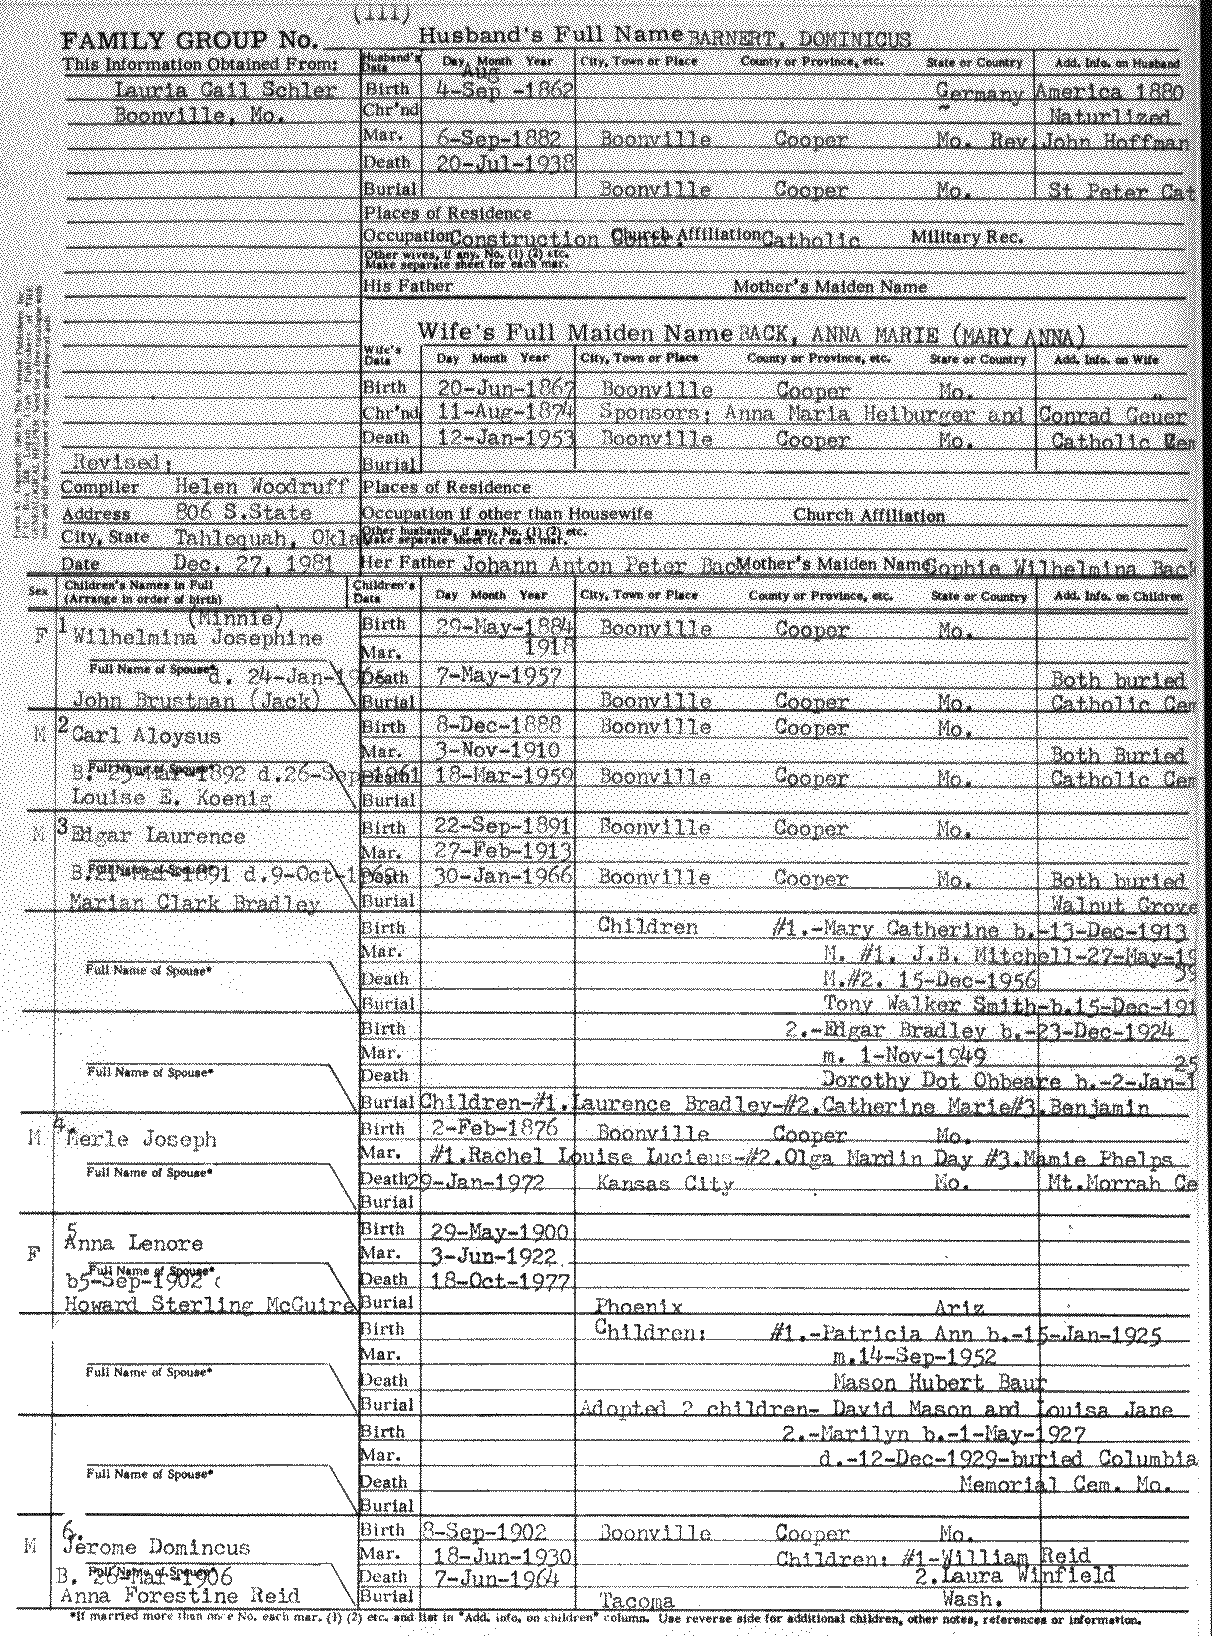 (111)
FAMILY GROUP No. Husband's Full Name BARNERT, DOMINICUS
This Information Obtained From: Husband's Data Day Month Year City, Town or Place County or Province, etc. State or Country Add. Info. on Husband
Aug
Lauria Gail Schler Birth 4-Sep -1862 Germany America 1880
Boonville, Mo. Chr'nd Naturlized
Mar. 6-Sep-1882 Boonville Cooper Mo. Rev John Hoffman
Death 20-Jul-1938
Burial Boonville Cooper Mo. St Peter Cat
Places of Residence
Occupation Construction Contr. Church Affiliation Catholic Military Rec.
Other wives, if any. No. (1) (2) etc.
Make separate sheet for each mar.
His Father Mother's Maiden Name
Wife's Full Maiden Name BACK, ANNA MARIE (MARY ANNA)
Wife's Data Day Month Year City, Town or Place County or Province, etc. State or Country Add. Info. on Wife
Birth 20-Jun-1867 Boonville Cooper Mo. "
Chr'nd 11-Aug-1874 Sponsors: Anna Maria Helburger and Conrad Geuer
Death 12-Jan-1953 Boonville Cooper Mo. Catholic Cem
Revised: Burial
Compiler Helen Woodruff Places of Residence
Address 806 S.State Occupation if other than Housewife Church Affiliation
City, State Tahlequah, Okla Other husbands, if any. No. (1) (2) etc.
Make separate sheet for each mar.
Date Dec. 27, 1981 Her Father Johann Anton Peter Back Mother's Maiden Name Sophie Wilhelmina Back
Sex Children's Names in Full (Arrange in order of birth) Children's Data Day Month Year City, Town or Place County or Province, etc. State or Country Add. Info. on Children
(Minnie)
F 1 Wilhelmina Josephine Birth 29-May-1884 Boonville Cooper Mo.
Mar. 1918
Full Name of Spouse* d. 24-Jan-19 Death 7-May-1957 Both buried
John Brustman (Jack) Burial Boonville Cooper Mo. Catholic Cem
M 2 Carl Aloysus Birth 8-Dec-1888 Boonville Cooper Mo.
Mar. 3-Nov-1910 Both Buried
Full Name of Spouse* B. 29-Mar-1892 d.26-Sep-1961 Death 18-Mar-1959 Boonville Cooper Mo. Catholic Cem
Louise E. Koenig Burial
M 3 Edgar Laurence Birth 22-Sep-1891 Boonville Cooper Mo.
Mar. 27-Feb-1913
Full Name of Spouse* B.21-Mar-1891 d.9-Oct-1969 Death 30-Jan-1966 Boonville Cooper Mo. Both buried
Marian Clark Bradley Burial Walnut Grove
Birth Children #1.-Mary Catherine b.-13-Dec-1913
Mar. M. #1. J.B. Mitchell-27-May-19
Full Name of Spouse* Death M.#2. 15-Dec-1956 39
Burial Tony Walker Smith-b.15-Dec-191
Birth 2.-Edgar Bradley b.-23-Dec-1924
Mar. m. 1-Nov-1949 25
Full Name of Spouse* Death Dorothy Dot Obbeare b.-2-Jan-1
Burial Children-#1.Laurence Bradley-#2.Catherine Marie#3.Benjamin
M 4. Merle Joseph Birth 2-Feb-1876 Boonville Cooper Mo.
Mar. #1.Rachel Louise Lucieus-#2.Olga Mardin Day #3.Mamie Phelps
Full Name of Spouse* Death 29-Jan-1972 Kansas City Mo. Mt.Morrah Ce
Burial
5 Birth 29-May-1900
F Anna Lenore Mar. 3-Jun-1922
Full Name of Spouse* b5-Sep-1902 Death 18-Oct-1977
Howard Sterling McGuire Burial Phoenix Ariz
Birth Children: #1.-Patricia Ann b.-15-Jan-1925
Mar. m.14-Sep-1952
Full Name of Spouse* Death Mason Hubert Baur
Burial Adopted 2 children- David Mason and Louisa Jane
Birth 2.-Marilyn b.-1-May-1927
Mar. d.-12-Dec-1929-buried Columbia
Full Name of Spouse* Death Memorial Cem. Mo.
Burial
6. Birth 8-Sep-1902 Boonville Cooper Mo.
M Jerome Domincus Mar. 18-Jun-1930 Children: #1-William Reid
Full Name of Spouse* B. 26-Mar-1906 Death 7-Jun-1964 2.Laura Winfield
Anna Forestine Reid Burial Tacoma Wash.
*If married more than once No. each mar. (1) (2) etc. and list in "Add. info. on children" column. Use reverse side for additional children, other notes, references or information.